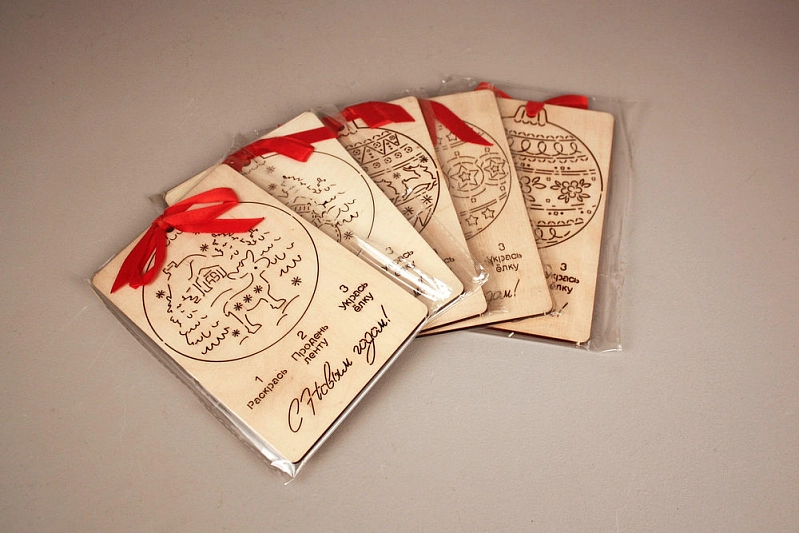 1
Раскрась
2
Продень
ленту
3
Укрась
ёлку
С Новым годом!
3
Укрась
3
Укрась
ёлку
годом!
3
Укрась
ёлку